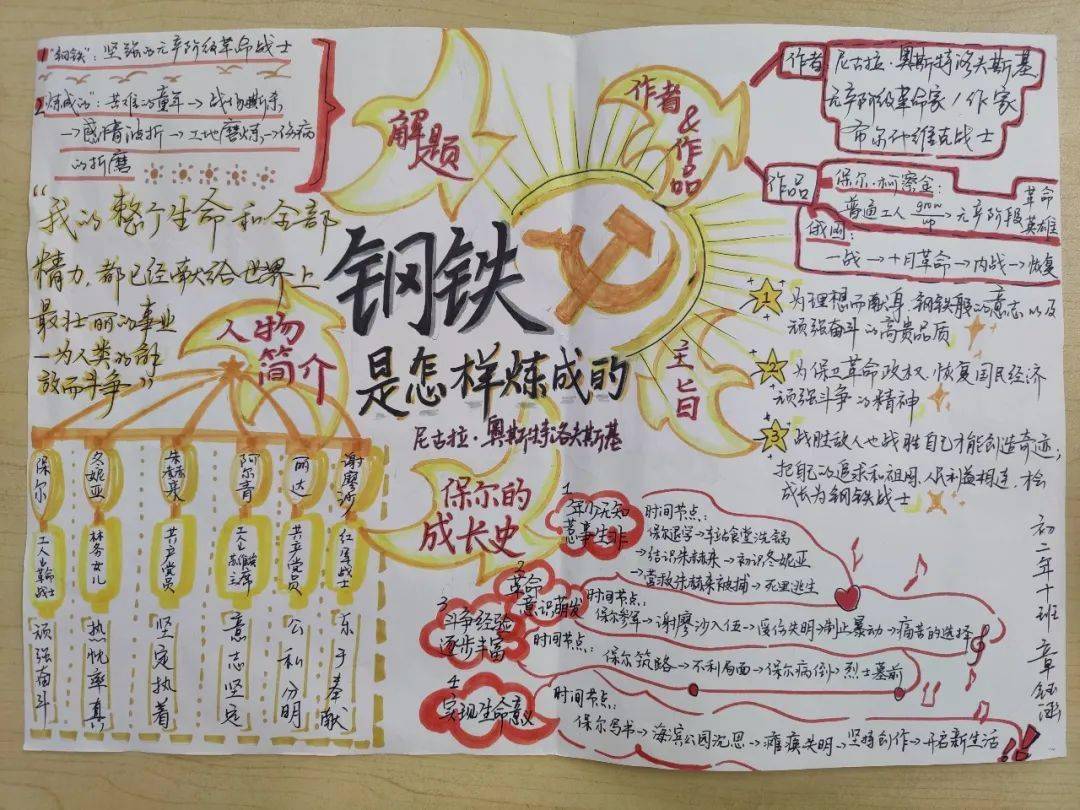 1"钢铁":坚强的无产阶级革命战士
2"炼成的":苦难的童年→战场厮杀
→感情波折→工地磨炼→伤病
的折磨
解题
"我的整个生命和全部
精力,都已经献给世界上
最壮丽的事业
—为人类的解
放而斗争"
作者
&
作品
作者
尼古拉·奥斯特洛夫斯基
无产阶级革命家/作家
布尔什维克战士
作品
保尔·柯察金:
普通工人 grow up→无产阶段革命英雄
俄国:
一战→十月革命→内战→恢复
钢铁
是怎样炼成的
尼古拉·奥斯特洛夫斯基
主旨
1 为理想而献身,钢铁般的意志以及
顽强奋斗的高贵品质
2 为保卫革命政权,恢复国民经济
顽强奋斗的精神
3 战胜敌人也战胜自己才能创造奇迹,
把自己的追求和祖国、人民利益相连,才会
成长为钢铁战士
人物
简介
保尔
工人出革命战士
顽强奋斗
冬妮亚
林务官女儿
热忱率真
朱赫来
共产党员
坚定执着
阿尔青
工人出
主席
意志坚定
丽达
共产党员
公私分明
谢廖沙
红军战士
乐于奉献
保尔的
成长史
1 年少无知
惹事生非
时间节点:
保尔退学→车站食堂洗锅
→结识朱赫来→初识冬妮亚
→营救朱赫来被捕→死里逃生
2 革命
意识萌发
时间节点:
保尔参军→谢廖沙入伍→受伤失明→制止暴动→痛苦的选择
3 斗争经验
逐步丰富
时间节点:
保尔筑路→不利局面→保尔病倒→烈士墓前
4
实现生命意义
时间节点:
保尔写书→海滨公园沉思→瘫痪失明→坚持创作→开启新生活
初二年十班 章钰涵